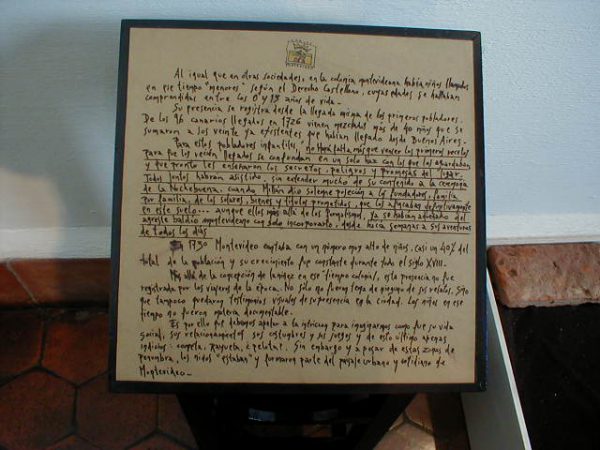 Al igual que en otras sociedades, en la colonia montevideana había niños llamados
en ese tiempo "menores" según el Derecho Castellano, cuyas edades se hallaban
comprendidas entre los 0 y 15 años de vida.-
Su presencia se registra desde la llegada misma de los primeros pobladores.
De los 96 canarios llegados en 1726 vienen mezclados mas de 40 niños que se
sumaron a los veinte ya existentes que habían llegado desde Buenos Aires.-
Para estos pobladores infantiles, "no hará falta más que vencer los primeros recelos
para que los recién llegados se confundan en un solo haz con los que los aguardaban
y que pronto les enseñarán los secretos, peligros y promesas del lugar.
Todos juntos habrán asistido, sin entender mucho de su contenido a la ceremonia
de la Nochebuena, cuando Millán dio solemne posesión a los fundadores, familia
por familia, de los solares, bienes y títulos prometidos, que los afincaba definitivamente
en este suelo... aunque ellos más allá de los formalismos, ya se habían adueñado del
agreste balcón montevideano con todo incorporarlo, desde hacía semanas a sus aventuras
de todos los días
1730 Montevideo contaba con un número muy alto de niños. Casi un 40% del
total de la población y su crecimiento fue constante durante todo el siglo XVIII.-
Más allá de la concepción de la niñez en ese tiempo colonial, esta presencia no fue
registrada por los viajeros de la época. No sólo no fueron tema de ninguno de sus relatos, sino
que tampoco quedaron testimonios visuales de su presencia en la ciudad. Los niños en ese
tiempo no fueron materia documentable.
Es por ello que debemos apelar a la intuición para imaginarnos como fue su vida
social, sus relacionamientos, sus costumbres y sus juegos y de esto último apenas
indicios: cometa, rayuela, ¿pelota?. Sin embargo y a pesar de estas zonas de
penumbra, los niños "estaban" y formaron parte del paisaje urbano y cotidiano de
Montevideo.-